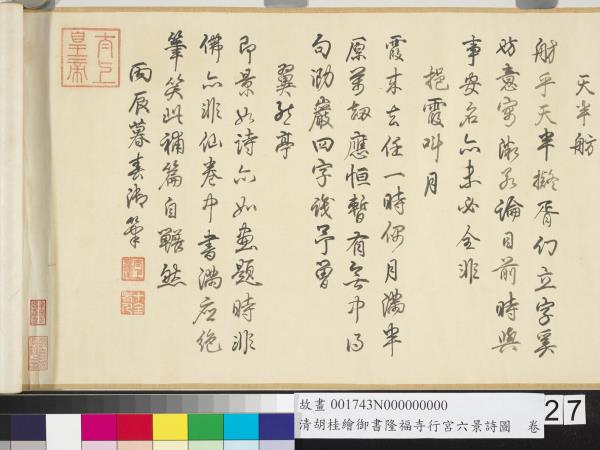 天半舫
舫乎天半擬胥幻立字奚
妨意寓深若論目前時與
事安名亦未必全非
挹霞叫月
霞來去任一時偶月滿半
原万劫應恒暫有無中得
句泐巖四字識予曾
翼然亭
即景如詩亦如畫題時非
佛亦非仙卷中書滿應絶
筆笑此補篇自囅然
丙辰暮春御筆
太上
皇帝
故畫 001743N000000000
清胡桂繪御書隆福寺行宮六景詩圖 卷
27